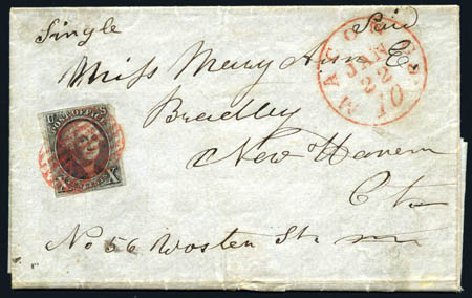 Single Paid
Miss Mary Ann E.
Bradley
New Haven
Ct
No 56 Wooster St.
MACON GA.
JAN
22
10
POST OFFICE
X X